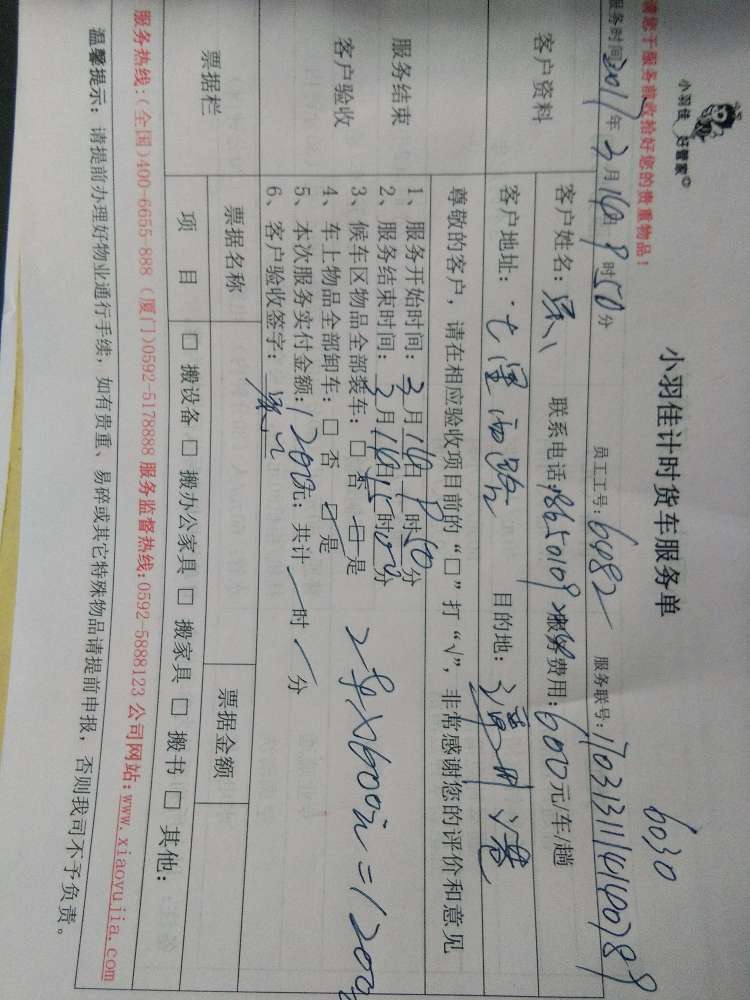 小羽佳 好管家
6030
小羽佳计时货车服务单
请您于服务前收拾好您的贵重物品！
员工工号：6482 服务联号：
服务时间 年3月16日9时50分
客户资料
客户姓名： 联系电话： 服务费用：600元/车/趟
客户地址： 目的地：漳州港
尊敬的客户，请在相应验收项目前的“□”打“√”，非常感谢您的评价和意见
服务结束
客户验收
1、服务开始时间：3月16日9时50分
2、服务结束时间：3月16日15时00分
3、候车区物品全部装车：□否 □是
4、车上物品全部卸车：□否 □是
2车×600元=1200
5、本次服务实付金额：1200元；共计/时/分
6、客户验收签字：
票据栏
票据名称 票据金额
项 目 □搬设备 □搬办公家具 □搬家具 □搬书 □其他：
服务热线：（全国）400-6655-888（厦门）0592-5178888 服务监督热线：0592-5888123 公司网站：www.xiaoyujia.com
温馨提示：请提前办理好物业通行手续，如有贵重、易碎或其它特殊物品请提前申报，否则我司不予负责。